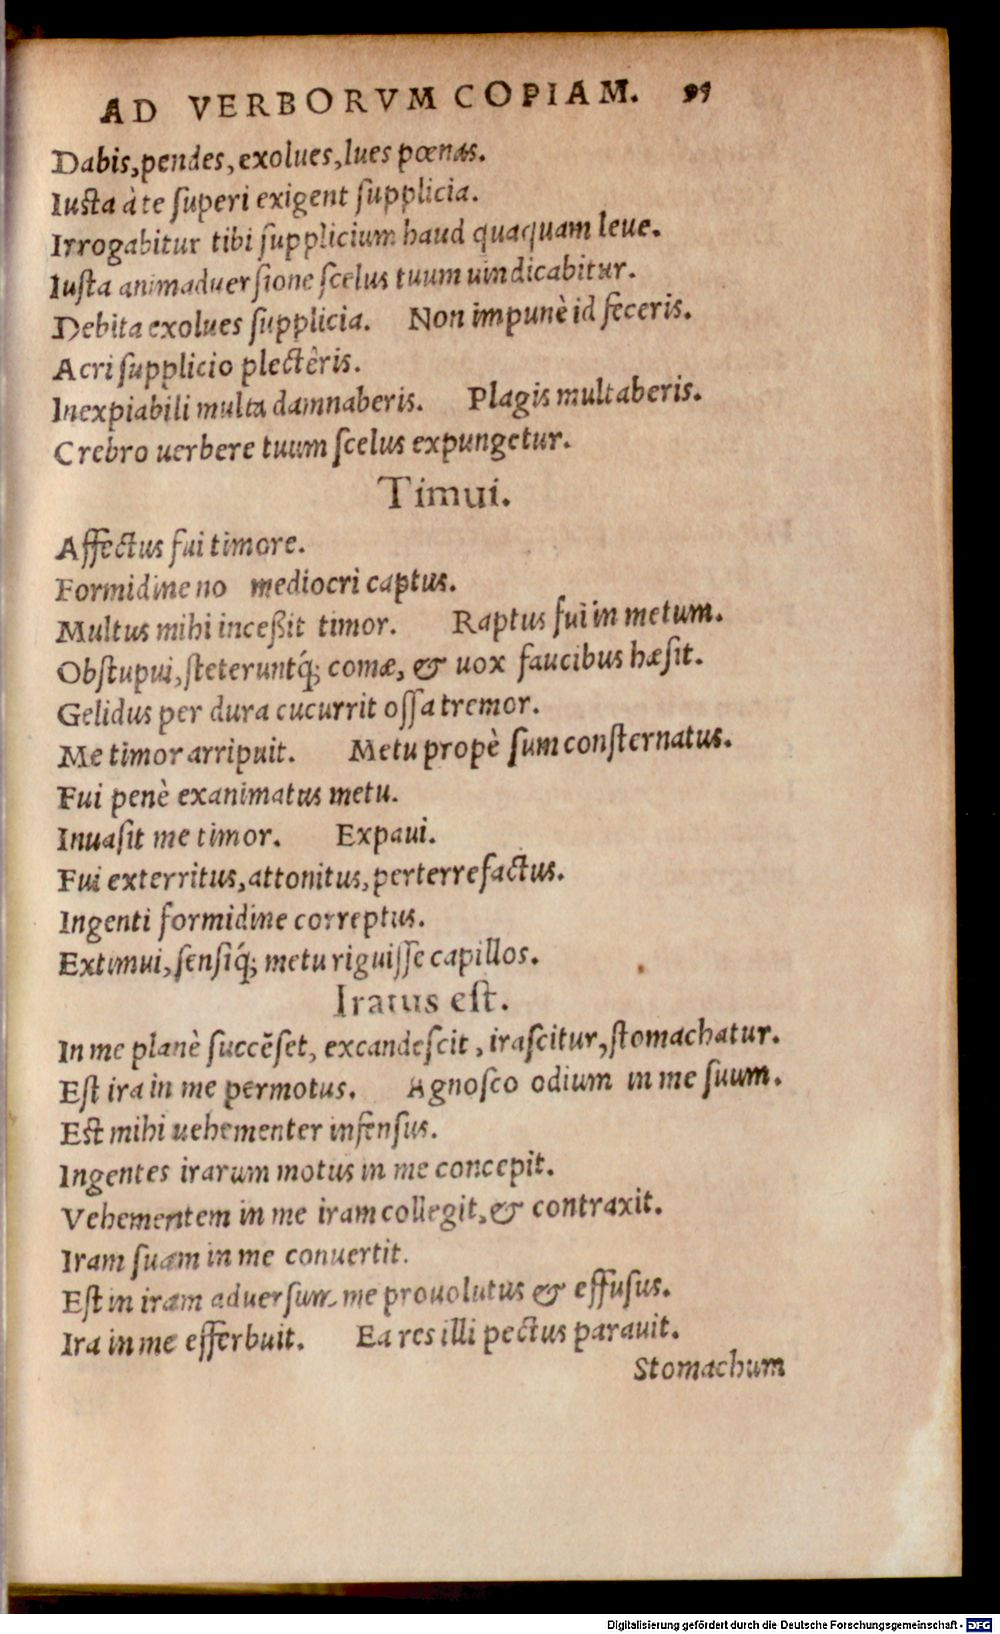 AD VERBORVM COPIAM. 95
Dabis, pendes, exolues, lues pœnas.
Iusta à te ſuperi exigent ſupplicia.
Irrogabitur tibi ſupplicium haud quaquam leue.
Iuſta animaduerſione ſcelus tuum uindicabitur.
Debita exolues ſupplicia. Non impunè id feceris.
Acri ſupplicio plectêris.
Inexpiabili multa damnaberis. Plagis multaberis.
Crebro uerbere tuum ſcelus expungetur.
Timui.
Affectus fui timore.
Formidine no mediocri captus.
Multus mihi inceßit timor. Raptus fui in metum.
Obſtupui, ſteteruntq́; comæ, & uox faucibus hæſit.
Gelidus per dura cucurrit oſſa tremor.
Me timor arripuit. Metu propè ſum conſternatus.
Fui penè exanimatus metu.
Inuaſit me timor. Expaui.
Fui exterritus, attonitus, perterrefactus.
Ingenti formidine correptus.
Extimui, ſenſiq́; metu riguiſſe capillos.
Iratus eſt.
In me planè ſuccẽſet, excandeſcit, iraſcitur, ſtomachatur.
Eſt ira in me permotus. Agnoſco odium in me ſuum.
Eſt mihi uehementer infenſus.
Ingentes irarum motus in me concepit.
Vehementem in me iram collegit, & contraxit.
Iram ſuam in me conuertit.
Eſt in iram aduerſum me prouolutus & effuſus.
Ira in me efferbuit. Ea res illi pectus parauit.
Stomachum
Digitalisierung gefördert durch die Deutsche Forschungsgemeinschaft - DFG